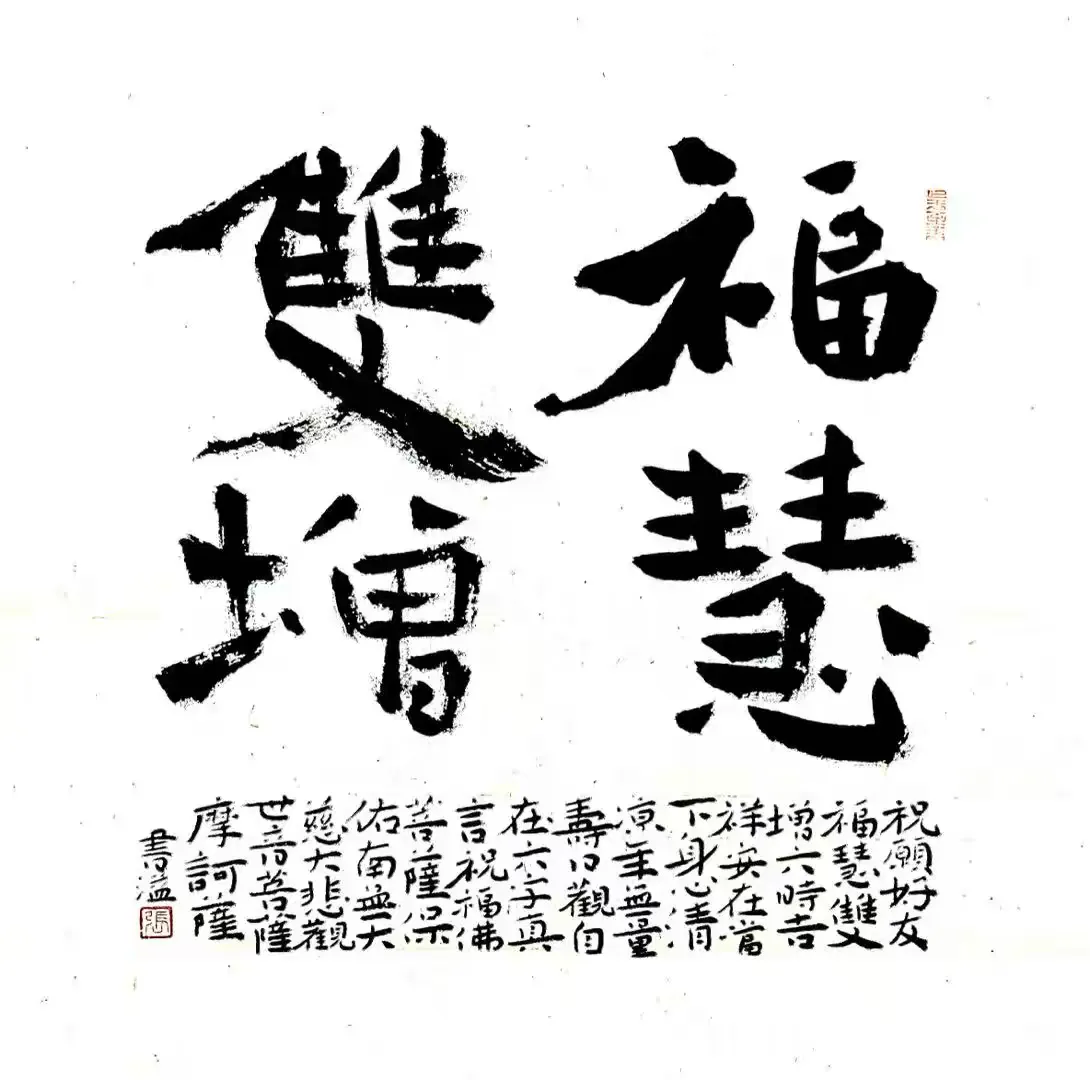 福慧
雙增
祝願好友
福慧雙
增六時吉
祥安在當
下身心清
凉年無量
壽日觀自
在六字真
言祝福佛
菩薩保
佑南無大
慈大悲觀
世音菩薩
摩訶薩
書溢
張